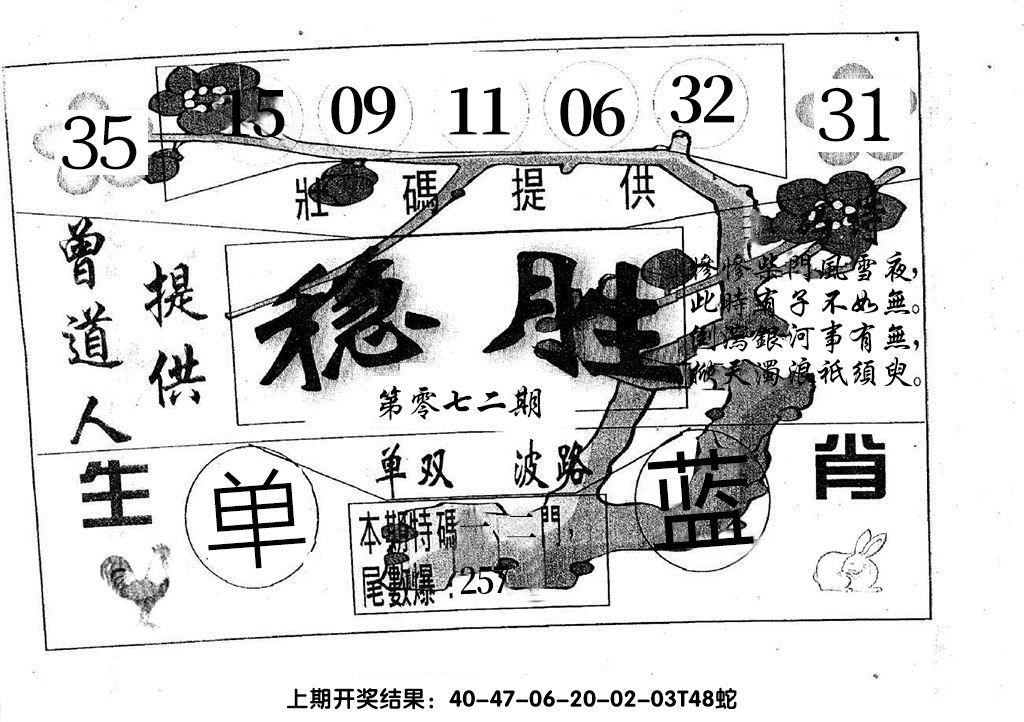 35 15 09 11 06 32 31
壯碼提供
曾道人
提供
稳胜
第零七二期
特
慘慘柴門風雪夜，
此時有子不如無。
倒瀉銀河事有無，
掀天濁浪祇須臾。
单双 波路
生 肖
单
蓝
本期特碼一、二門，
尾數爆：257
上期开奖结果：40-47-06-20-02-03T48蛇